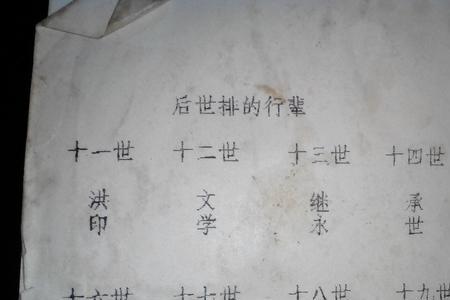 后世排的行辈
十一世 十二世 十三世 十四世
洪 文 继 承
印 学 永 世
十六世 十七世 十八世 十九世